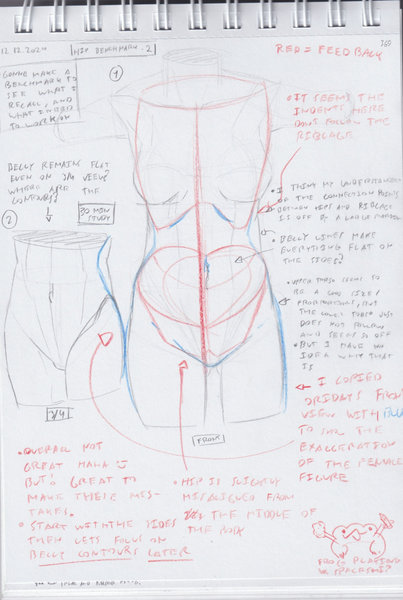 12.12.2024
HIP BENCHMARK: 2
RED = FEEDBACK
GONNA MAKE A
BENCHMARK TO
SEE WHAT I
RECALL, AND
WHAT I NEED
TO WORK ON
1
IT SEEMS THE
INDENTS HERE
DONT FOLLOW THE
RIBCAGE
BELLY REMAINS FLAT
EVEN ON 3/4 VIEW?
WHERE ARE THE
CONTOURS?
I THINK MY UNDERSTANDING
OF THE CONNECTION POINTS
BETWEEN HIPS AND RIBCAGE
IS OFF BY A LARGE MARGIN
2
30 MIN
STUDY
BELLY LINES MAKE
EVERYTHING FLAT ON
THE SIDES?
UPPER TORSO SEEMS TO
BE A GOOD SIZE/
PROPORTION, BUT
THE LOWER TORSO JUST
DOES NOT FOLLOW
AND SEEMS SO OFF
BUT I HAVE NO
IDEA WHY THAT
IS
3/4
FRONT
I COPIED
FRONT
VIEW WITH BLUE
TO THE
EXAGGERATION
OF THE FEMALE
FIGURE
OVERALL NOT
GREAT HAHA :)
BUT! GREAT TO
MAKE THESE MIS-
TAKES.
START WITH THE SIDES
THEN LETS FOCUS ON
BELLY CONTOURS LATER
HIP IS SLIGHTLY
MISALIGNED FROM
THE MIDDLE OF
THE BODY
FROG PLAYING
W SPACESHIP